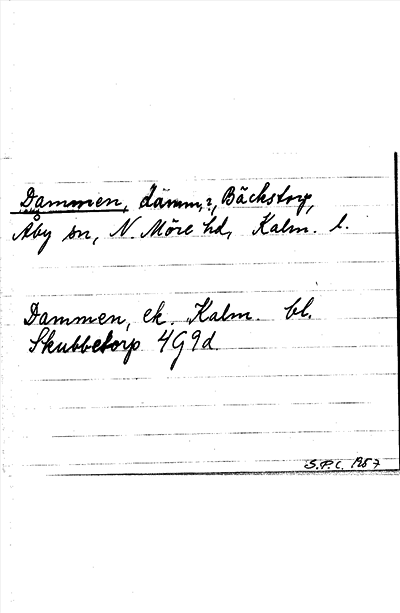 Dammen, damm?, Bäckstorp,
Åby sn, N. Möre hd, Kalm. l.
Dammen, ek. Kalm. bl.
Skubbetorp 4G9d
S.P.C. 1957